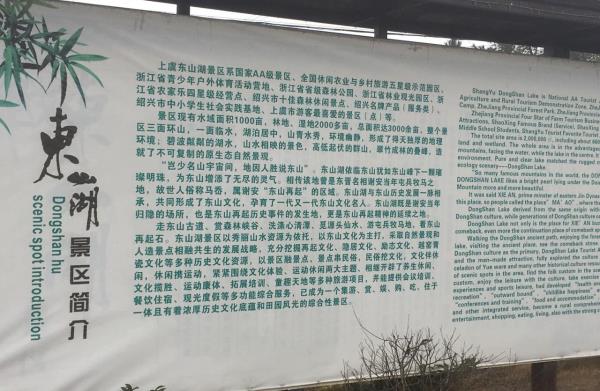 东山湖
景区简介
Dongshan hu
scenic spot introduction
上虞东山湖景区系国家AA级景区、全国休闲农业与乡村旅游五星级示范园区、
浙江省青少年户外体育活动营地、浙江省省级森林公园、浙江省林业观光园区、浙
江省农家乐四星级经营点、绍兴市十佳森林休闲景点、绍兴名牌产品（服务类）、
绍兴市中小学生社会实践基地、上虞市游客最喜爱的景区（点）等。
景区现有水域面积1000亩，林地、湿地2000多亩，总面积达3000余亩，整个景
区三面环山，一面临水，湖泊居中，山青水秀，环境幽静，形成了得天独厚的地理
环境；碧波粼粼的湖水，山水相映的景色，高低起伏的群山，翠竹成林的叠嶂，造
就了不可复制的原生态自然景观。
古少名山宇宙间，地因人胜说东山"。东山湖依临东山犹如东山峰下一颗璀
璨明珠，为东山增添了无尽的灵气。相传该地曾是东晋名相谢安当年屯兵牧马之
地，故世人俗称马岙，属谢安"东山再起"的根据地。东山湖与东山历史发展一脉相
承，共同形成了东山文化，孕育了一代又一代东山文化名人。东山湖既是谢安当年
归隐的场所，也是东山再起历史事件的发生地，更是东山再起精神的延续之地。
走东山古道、赏森林峡谷、洗涤心清溪、觅源头仙水、游屯兵牧马地、看东山
再起石。东山湖景区以秀丽山水资源为依托，以东山文化为主打，采取自然景观和
人造景点相融共生的发展战略，充分挖掘再起文化、隐居文化、励志文化、越窑青
瓷文化等多种历史文化资源，以景区融景点，景点串民俗，民俗挖文化，文化伴休
闲，休闲携运动，紧紧围绕文化体验、运动休闲两大主题，相继开辟了养生休闲、
文化揽胜、运动康体、拓展培训、童趣天地等多种旅游项目，并能提供会议培训、
餐饮住宿、观光度假等多功能综合服务，已成为一个集游、赏、娱、购、吃、住于
一体且有着浓厚历史文化底蕴和田园风光的综合性景区。
ShangYu DongShan Lake is National AA Tourist
Agriculture and Rural Tourism Demonstration Zone, Zhe
Zhejiang Provincial Forest Park, Zhejiang Provincial
Zhejiang Provincial Four Star of Farm Tourism Business
Attractions, ShaoXing Famous Brand (Service), ShaoXing
Middle School Students, ShangYu Tourist Favourite
The total site area is 2,000,000 ㎡, including about 660
land and wetland. The whole area is in the advantageous
mountains, facing the water, while the lake in the centre.
environment. Pure and clear lake matched the rugged
ecology scenery---DongShan Lake.
"So many famous mountains in the world, the DONG
DONGSHAN LAKE likes a bright pearl lying under the Dong
Mountain more and more beautiful.
It was said XIE AN, prime minister of eastern Jin Dynasty
this place, so people called the place" MA' AO", where the
DongShan Lake derived from the same origin with
DongShan culture, while generations of DongShan culture
DongShan Lake not only is the place for XIE' AN
comeback, even more the continuation place of comeback
Walking the DongShan ancient path, enjoying the forest
lake, visiting the ancient place, see the comeback stone.
DongShan culture as the primary, DongShan Lake Tourist
and the man-made attraction, fully explore the culture
celadon of Yue ward and other historical culture resource
of scenic spots in the area, find the folk custom in the
custom, enjoy the leisure with the culture, take exercise
experiences and sports leisure, had developed "health
recreation", "outward bound", "childlike happiness"
"conferences and training", "food and accommodation"
and other integrated service, become a rural comprehensive
entertainment, shopping, eating, living, also with the strong